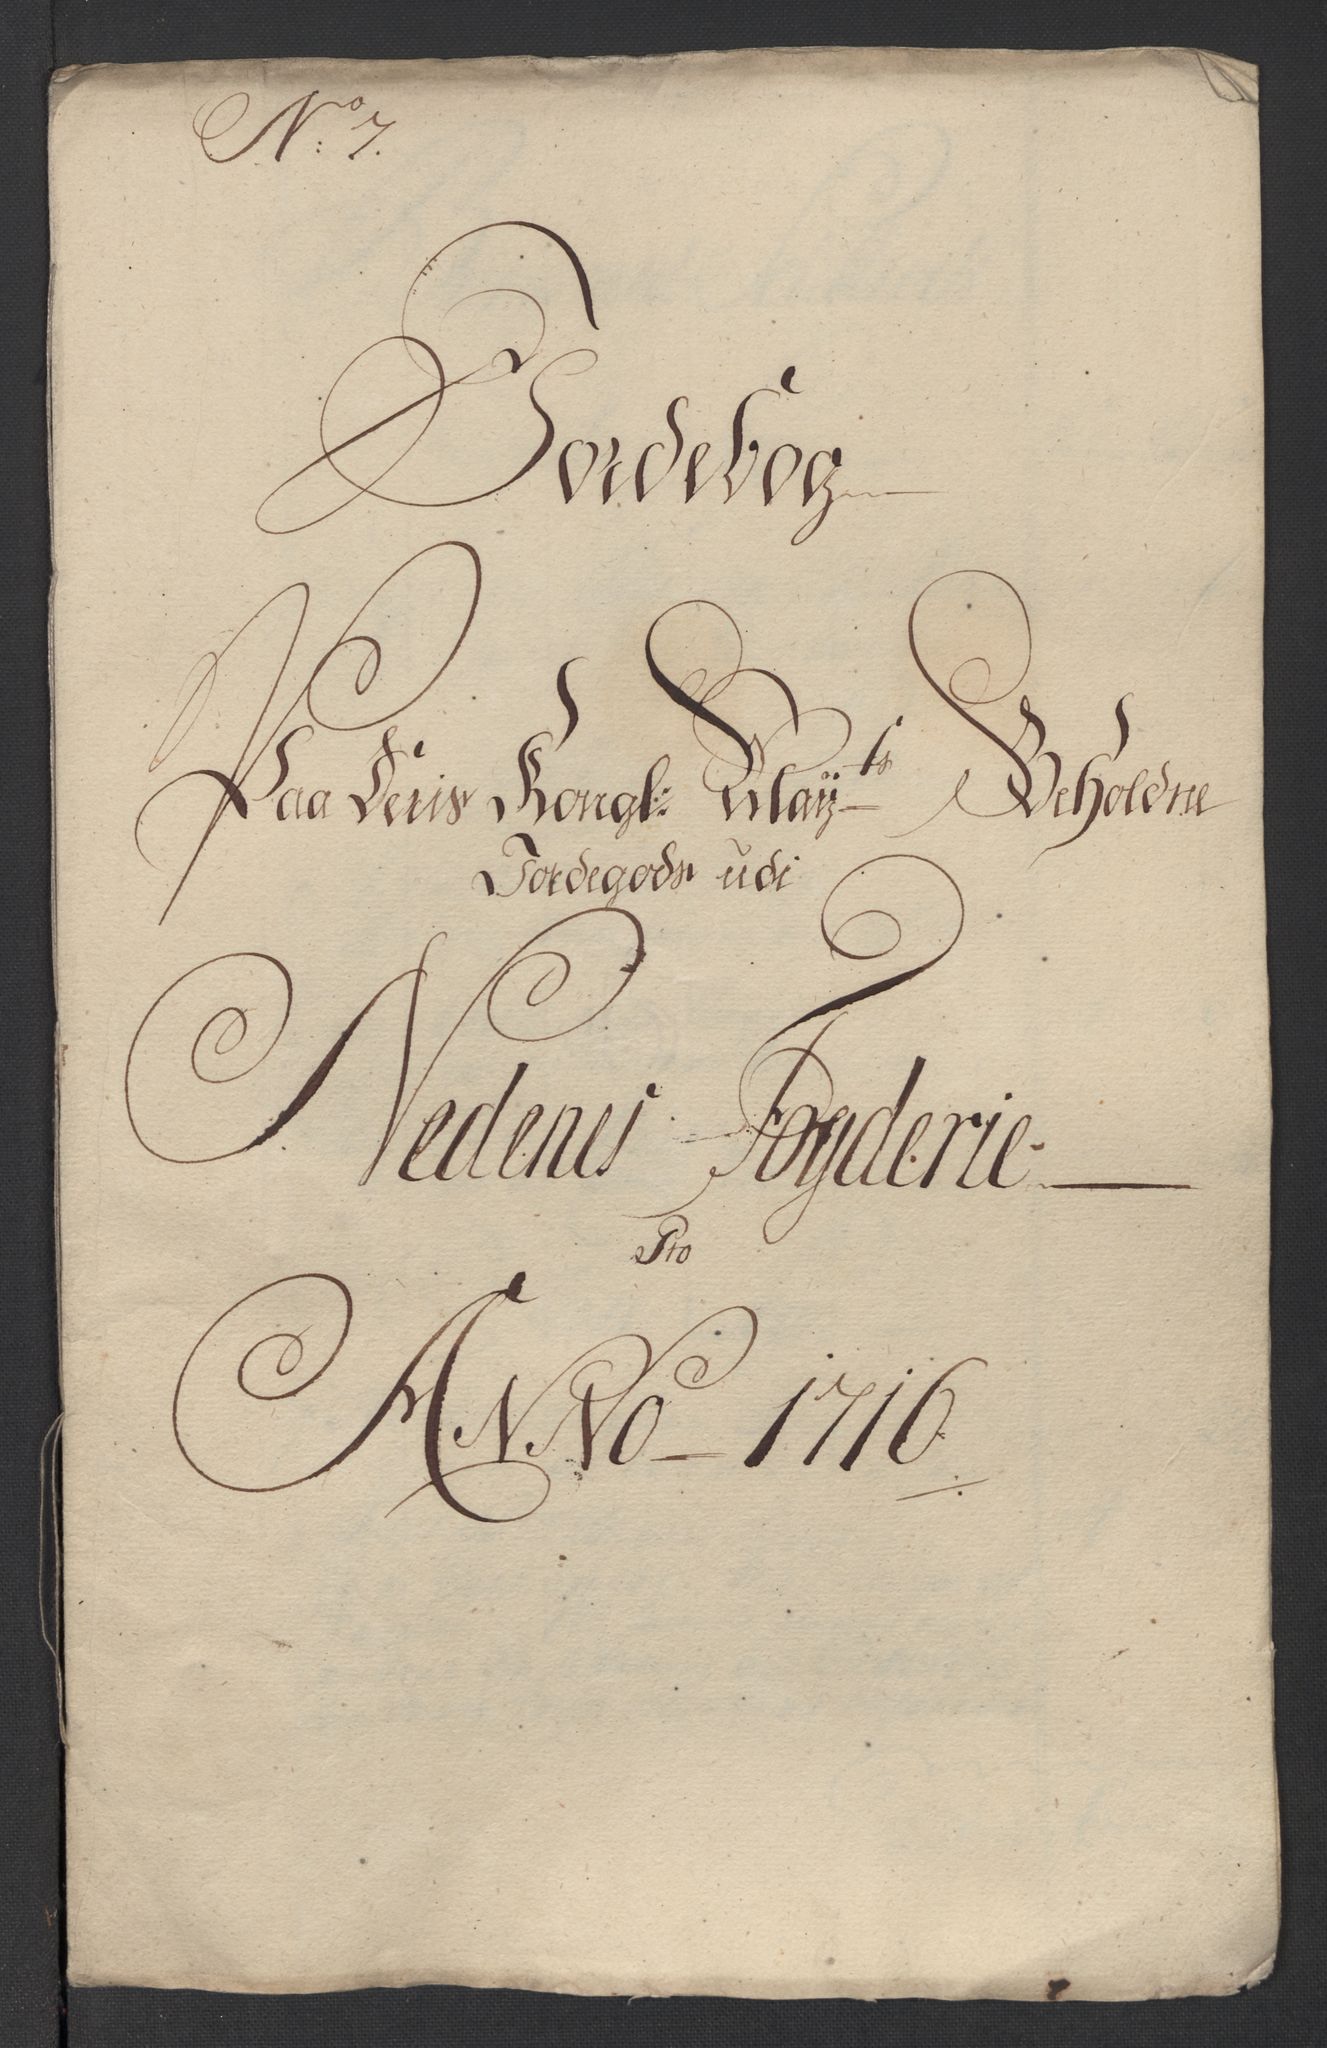 No: 7.
Jordebog
Paa Deris Kongl: Maÿts Beholdne
Jordegods udi
Nedenes Fogderie
Pro
ANNo 1716